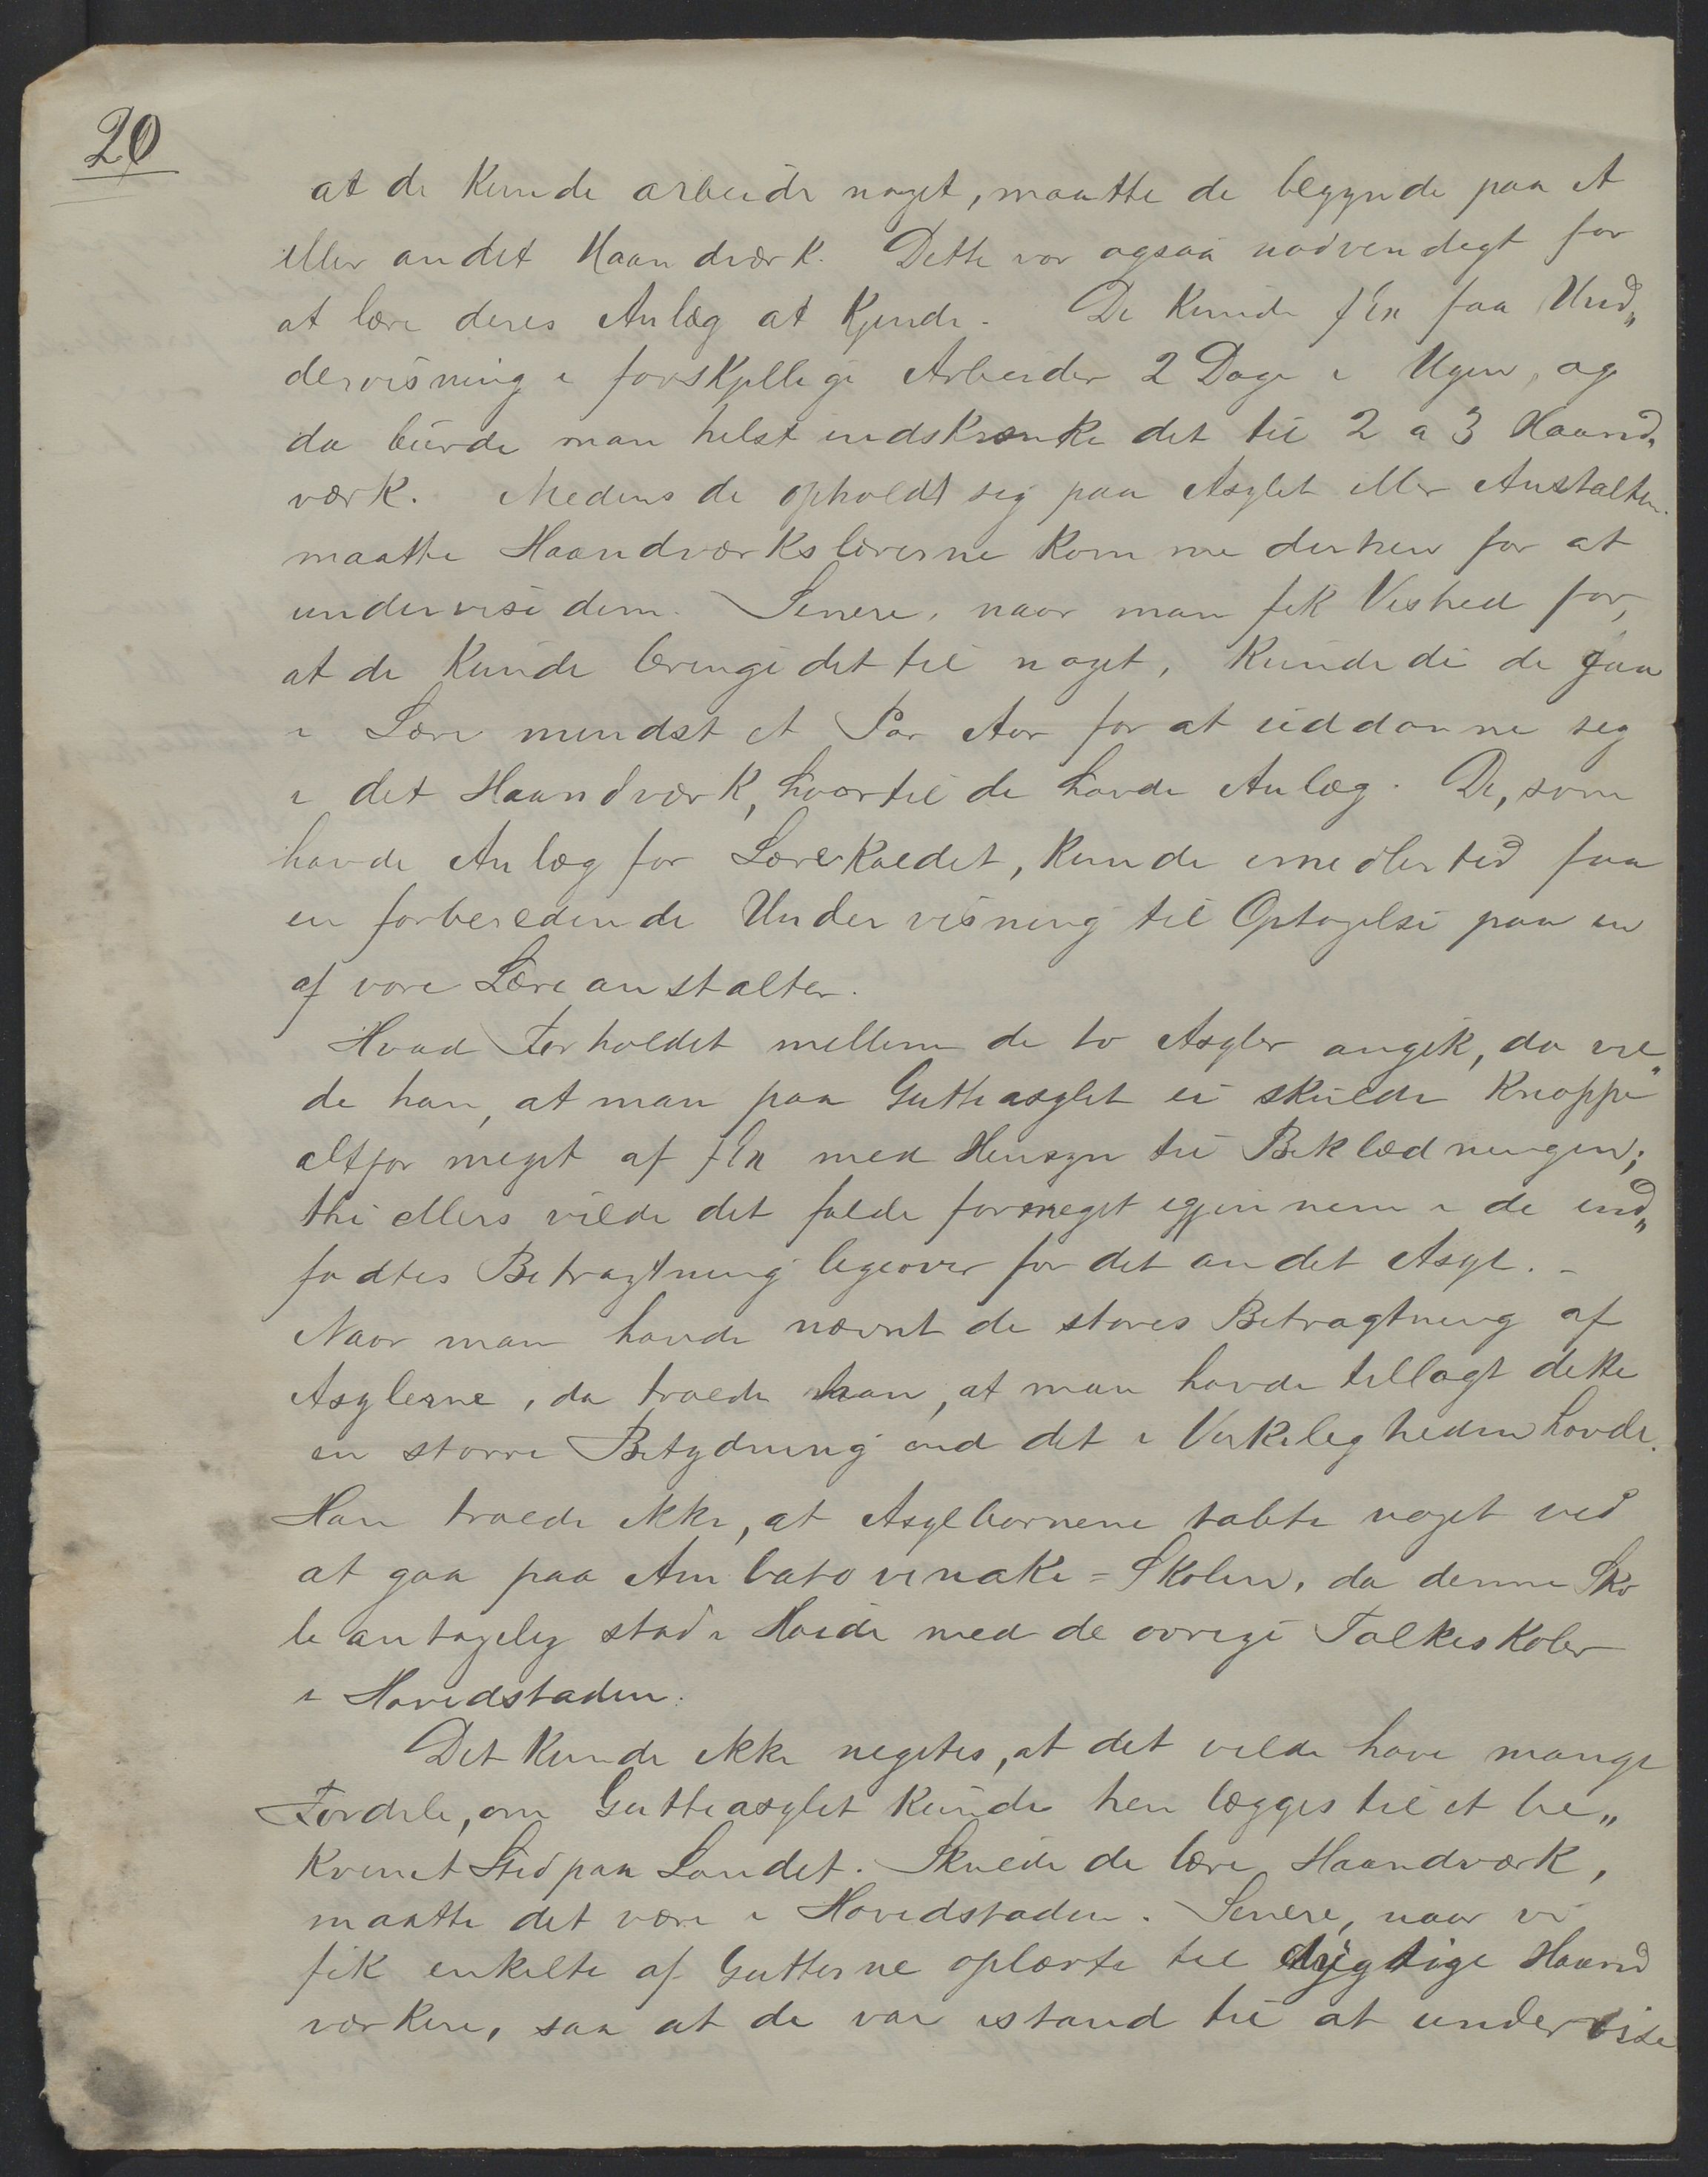 20
at de kunde arbeide noget, maatte de begynde paa et
eller andet Haandværk. Dette var ogsaa nødvendigt for
at lære deres Anlæg at kjende. De kunde f Ex faa Und„
dervisning i forskjellige Arbeider 2 Dage i Ugen, og
da burde man helst indskrænke det til 2 a 3 Haand„
værk. Medens de opholdt sig paa Asylet eller Anstalten
maatte Haandværkslærerne komme derhen for at
undervise dem. Senere, naar man fik Vished for,
at de kunde bringe det til noget, kunde de de gaa
i Lære mindst et Par Aar for at uddanne sig
i det Haandværk, hvortil de havde Anlæg. De, som
havde Anlæg for Lærerkaldet, kunde imidlertid faa
en forberedende Undervisning til Optagelse paa en
af vore Læreanstalter.
Hvad Forholdet mellem de to Asyler angik, da vil„
de han, at man paa Gutteasylet ei skulde knappe
altfor meget af f Ex med Hensyn til Beklædningen;
thi ellers vilde det falde formeget igjennem i de ind„
fødtes Betragtning ligeover for det andet Asyl. –
Naar man havde nævnt de stores Betragtning af
Asylerne, da troede han, at man havde tillagt dette
en større Betydning end det i Virkeligheden havde.
Han troede ikke, at Asylbørnene tabte noget ved
at gaa paa Ambatovinaki=Skolen, da denne Sko
le antagelig stod i Høide med de øvrige Folkeskoler
i Hovedstaden.
Det kunde ikke negtes, at det vilde have mange
Fordele, om Gutteasylet kunde henlægges til et be„
kvemt Sted paa Landet. Skulde de lære Haandværk,
maatte det være i Hovedstaden. Senere, naar vi
fik enkelte af Gutterne oplærte til dygtige Haand
værkere, saa at de var istand til at undervise